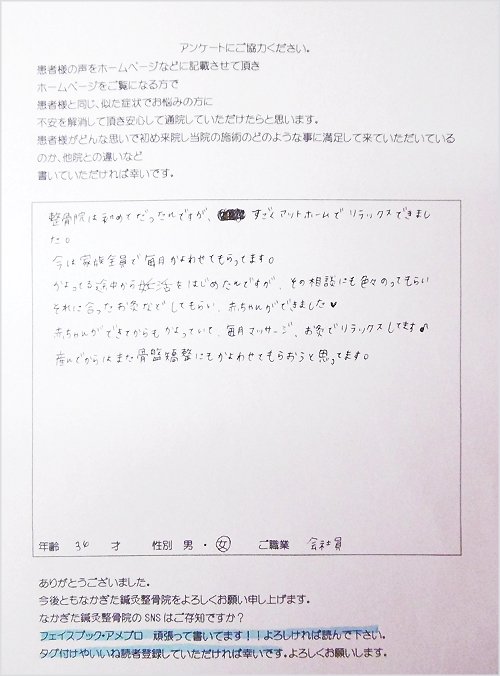 アンケートにご協力ください。
患者様の声をホームページなどに記載させて頂き
ホームページをご覧になる方で
患者様と同じ、似た症状でお悩みの方に
不安を解消して頂き安心して通院していただけたらと思います。
患者様がどんな思いで初め来院し当院の施術のどのような事に満足して来ていただいている
のか、他院との違いなど
書いていただければ幸いです。
整骨院は初めてだったんですが、すごくアットホームでリラックスできまし
た。
今は家族全員で毎月かよわせてもらってます。
かよってる途中から妊活をはじめたんですが、その相談にも色々のってもらい
それに合ったお灸などしてもらい、赤ちゃんができました♥
赤ちゃんができてからもかよっていて、毎月マッサージ、お灸でリラックスしてます♪
産んでからはまた骨盤矯整にもかよわせてもらおうと思ってます。
年齢 34 才 性別 男 ・ 女 ご職業 会社員
ありがとうございました。
今後ともなかぎた鍼灸整骨院をよろしくお願い申し上げます。
なかぎた鍼灸整骨院のSNSはご存知ですか?
フェイスブック・アメブロ 頑張って書いてます!!よろしければ読んで下さい。
タグ付けやいいね読者登録していただければ幸いです。よろしくお願いします。